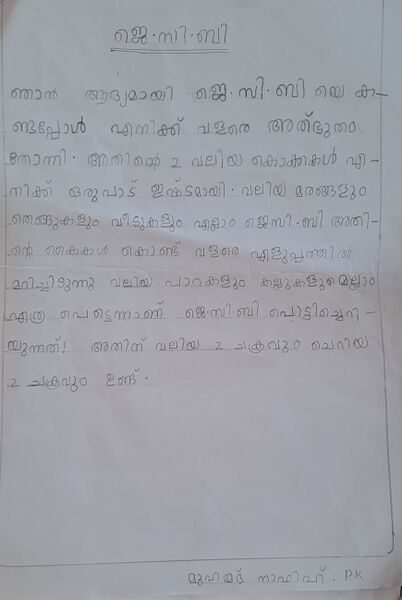 ജെ.സി.ബി
ഞാൻ ആദ്യമായി ജെ.സി.ബി യെ ക-
ണ്ടപ്പോൾ എനിക്ക് വളരെ അത്ഭുതം
തോന്നി. അതിന്റെ 2 വലിയ കൊക്കകൾ എ-
നിക്ക് ഒരുപാട് ഇഷ്ടമായി. വലിയ മരങ്ങളും
തെങ്ങുകളും വീടുകളും എല്ലാം ജെസി.ബി അതി-
ന്റെ കൈകൾ കൊണ്ട് വളരെ എളുപ്പത്തിൽ
മറിച്ചിടുന്നു വലിയ പാറകളും കല്ലുകളുമെല്ലാം
എത്ര പെട്ടെന്നാണ് ജെ.സി.ബി പൊട്ടിച്ചെറി-
യുന്നത്! അതിന് വലിയ 2 ചക്രവും ചെറിയ
2 ചക്രവും ഉണ്ട്.
മുഹമ്മദ് നാഫിഹ്. PK